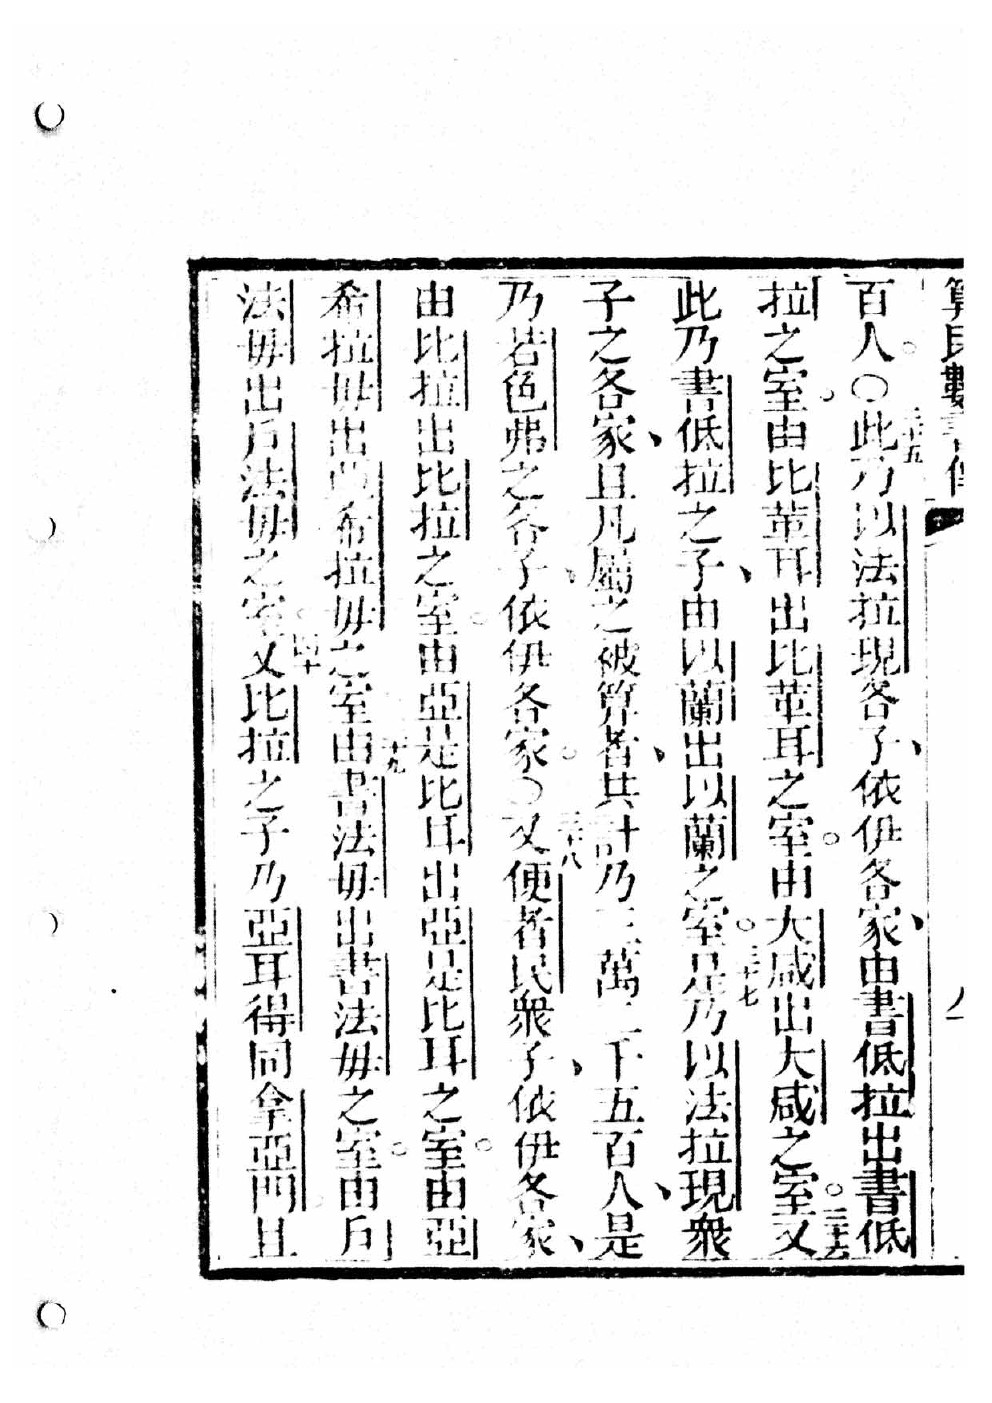 算民數書傳
百人。○三十五此乃以法拉現各子、依伊各家、由書低拉出書低
拉之室。由比革耳出比革耳之室。由大咸出大咸之室。三十六又
此乃書低拉之子、由以蘭出以蘭之室。三十七是乃以法拉現衆
子之各家、且凡屬之被算者、共計乃三萬二千五百人、是
乃若色弗之各子、依伊各家。○三十八又便者民衆子、依伊各家、
由比拉出比拉之室。由亞是比耳出亞是比耳之室。由亞
希拉毋出亞希拉毋之室。三十九由書法毋出書法毋之室。由戶
法毋出戶法毋之室。四十又比拉之子乃亞耳得同拿亞門、且